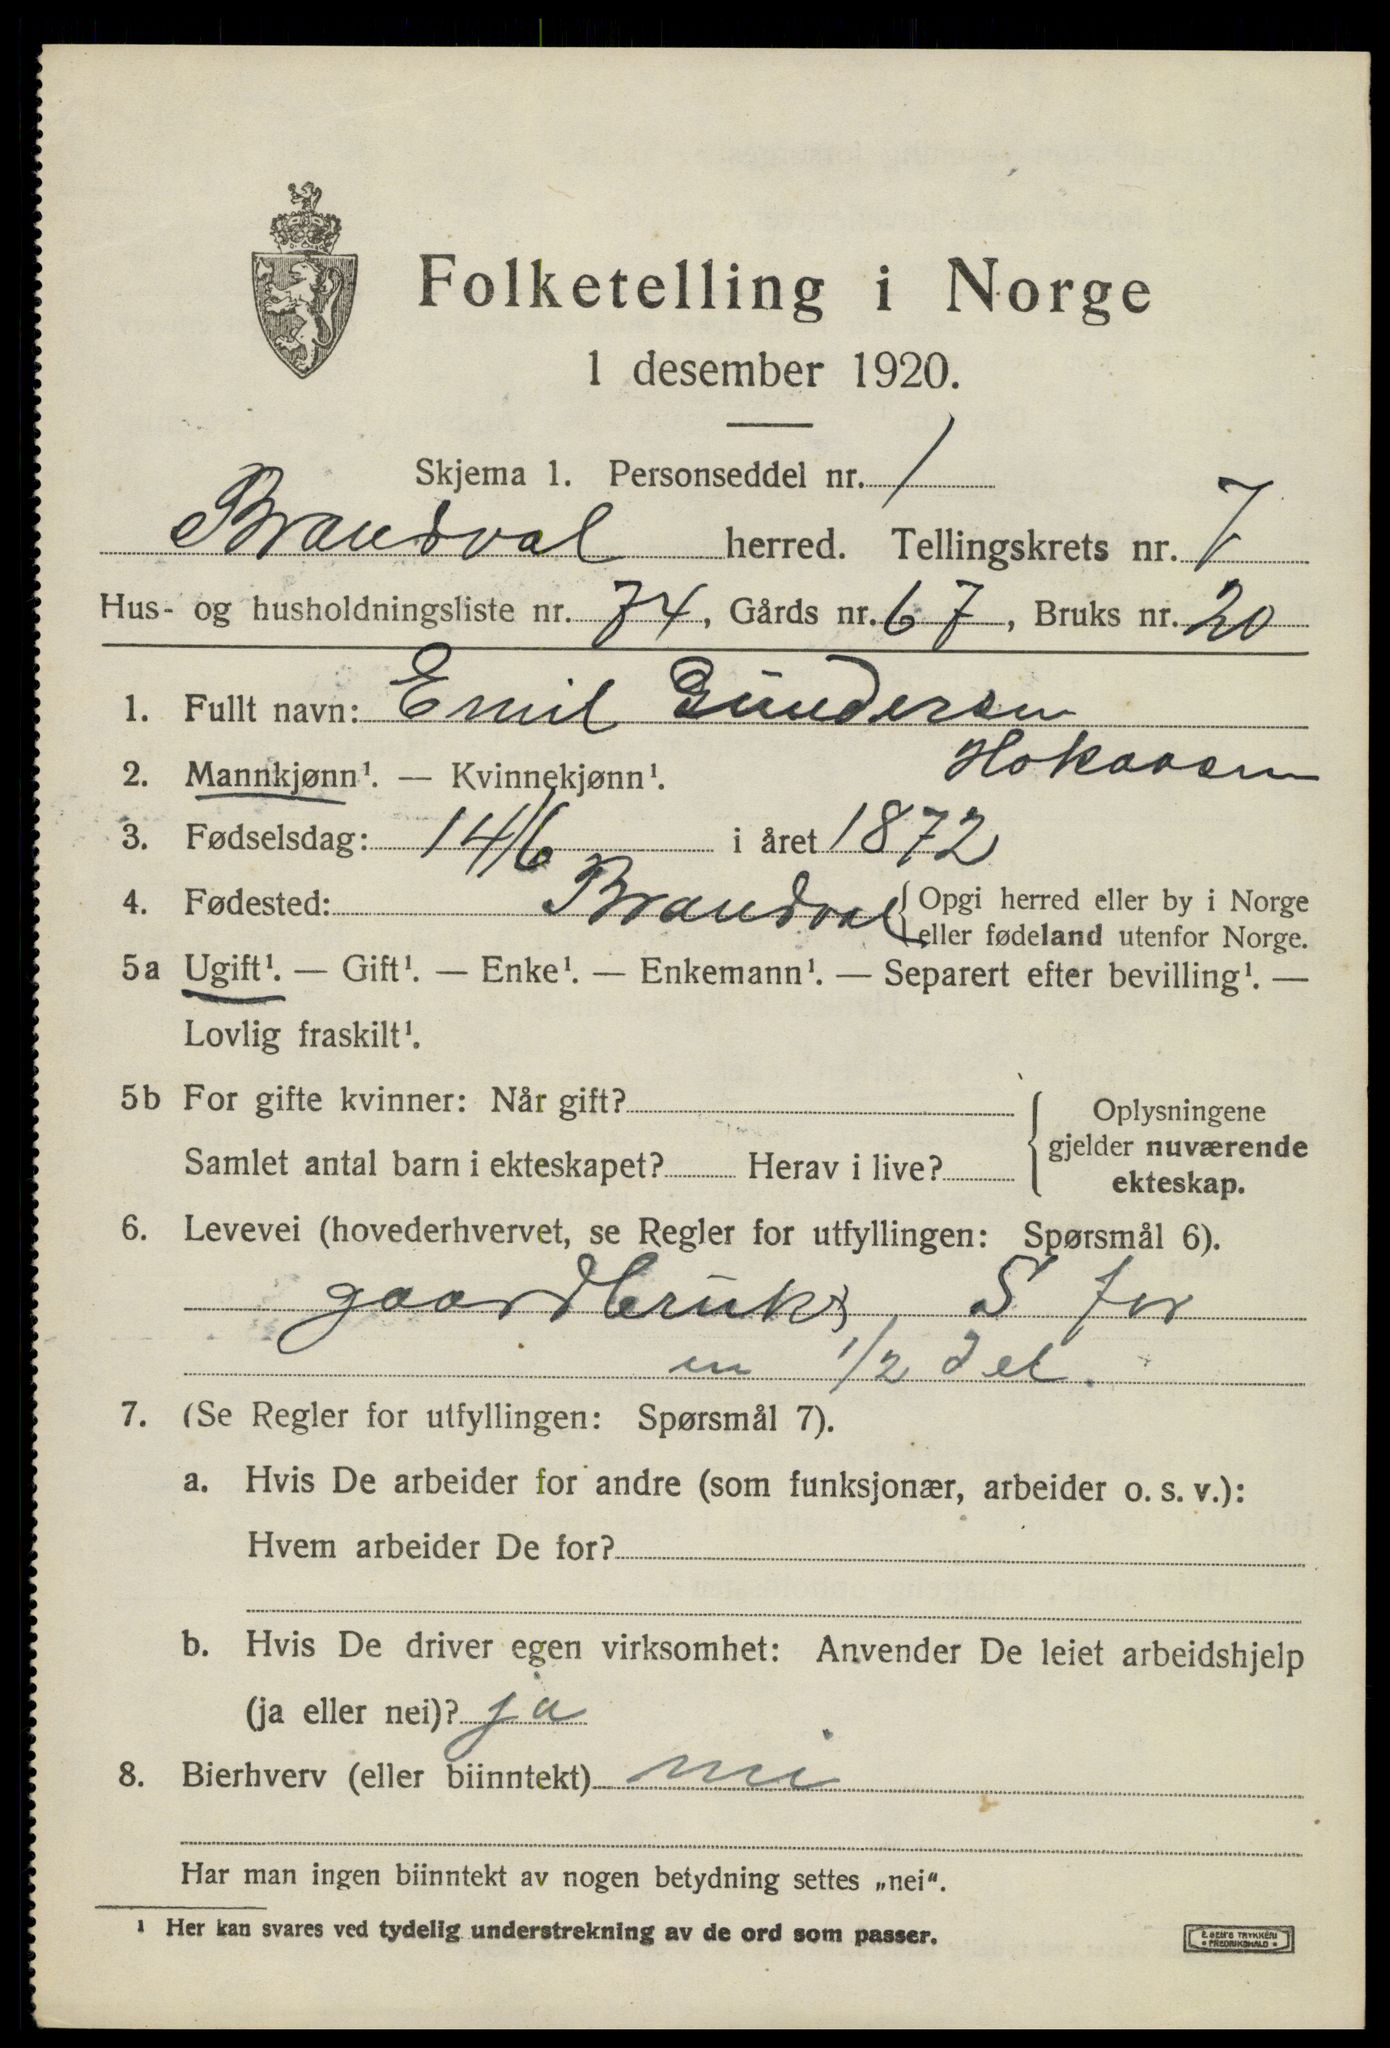 Folketelling i Norge
1 desember 1920.
Skjema 1. Personseddel nr. 1
Brandval herred. Tellingskrets nr. 7
Hus- og husholdningsliste nr. 74, Gårds nr. 67, Bruks nr. 20
1. Fullt navn: Emil Gundersen
Hokaasen
2. Mannkjønn¹. — Kvinnekjønn¹.
3. Fødselsdag: 14/6 i året 1872
4. Fødested: Brandval { Opgi herred eller by i Norge
eller fødeland utenfor Norge.
5a Ugift¹. — Gift¹. — Enke¹. — Enkemann¹. — Separert efter bevilling¹. —
Lovlig fraskilt¹.
5b For gifte kvinner: Når gift?
Samlet antal barn i ekteskapet? Herav i live?
Oplysningene
gjelder nuværende
ekteskap.
6. Levevei (hovederhvervet, se Regler for utfyllingen: Spørsmål 6).
gaardbruk S for
en 1/2 del.
7. (Se Regler for utfyllingen: Spørsmål 7).
a. Hvis De arbeider for andre (som funksjonær, arbeider o. s. v.):
Hvem arbeider De for?
b. Hvis De driver egen virksomhet: Anvender De leiet arbeidshjelp
(ja eller nei)? ja
8. Bierhverv (eller biinntekt) nei
Har man ingen biinntekt av nogen betydning settes „nei“.
¹ Her kan svares ved tydelig understrekning av de ord som passer.
E. SEM'S TRYKKERI
FREDRIKSHALD